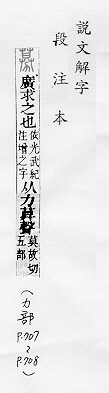 說文解字
段注本
募
廣求之也依光武紀注增之字从力莫聲莫故切五部
(力部
P.707
~
P.708)